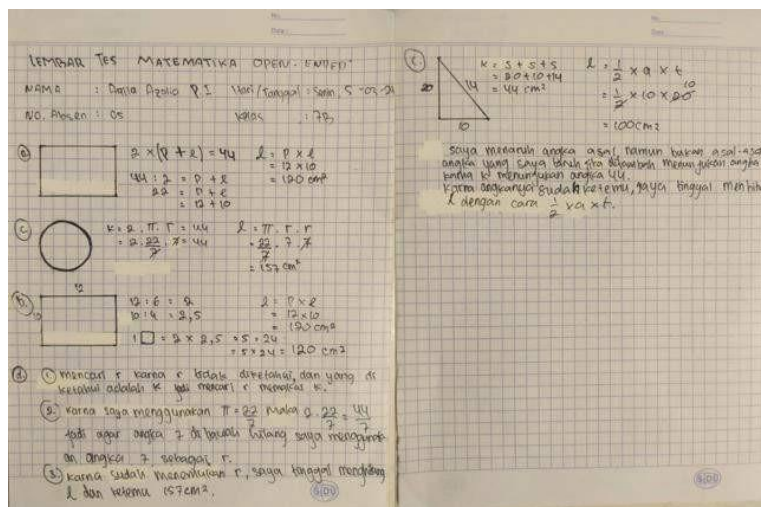 No.
Date.
LEMBAR TES MATEMATIKA OPEN-ENDED
NAMA : P.I Hari/Tanggal : Senin, 5-02-24
NO. Absen : 05 Kelas : 7B
a
2 × (p + l) = 44
44 : 2 = p + l
22 = p + l
= 12 + 10
l = p × l
= 12 × 10
= 120 cm²
c
k = 2 . π . r = 44
= 2 . 22/7 . 7 = 44
l = π . r . r
= 22/7 . 7 . 7
= 157 cm²
b.
12
10
12 : 6 = 2
10 : 4 = 2,5
1 □ = 2 × 2,5 = 5 . 24
= 5 × 24 = 120 cm²
l = p × l
= 12 × 10
= 120 cm²
d
1 mencari r karna r tidak diketahui, dan yang di
ketahui adalah k jadi mencari r memakai k.
2. karna saya menggunakan π = 22/7 maka 2 . 22/7 = 44/7
jadi agar angka 7 di bawah hilang saya menggunak
an angka 7 sebagai r.
3 karna sudah menemukan r, saya tinggal menghitung
l dan ketemu 157 cm².
SIDU
No.
Date.
20
14
10
k = 5 + 5 + 5
= 20 + 10 + 14
= 44 cm²
l = 1/2 × a × t
= 1/2 × 10 × 20 10
= 100 cm²
saya menaruh angka asal, namun bukan asal-asal
angka yang saya taruh jika ditambah menunjukan angka
karna k menunjukan angka 44.
karna angkanya sudah ketemu, saya tinggal
l dengan cara 1/2 × a × t.
SIDU